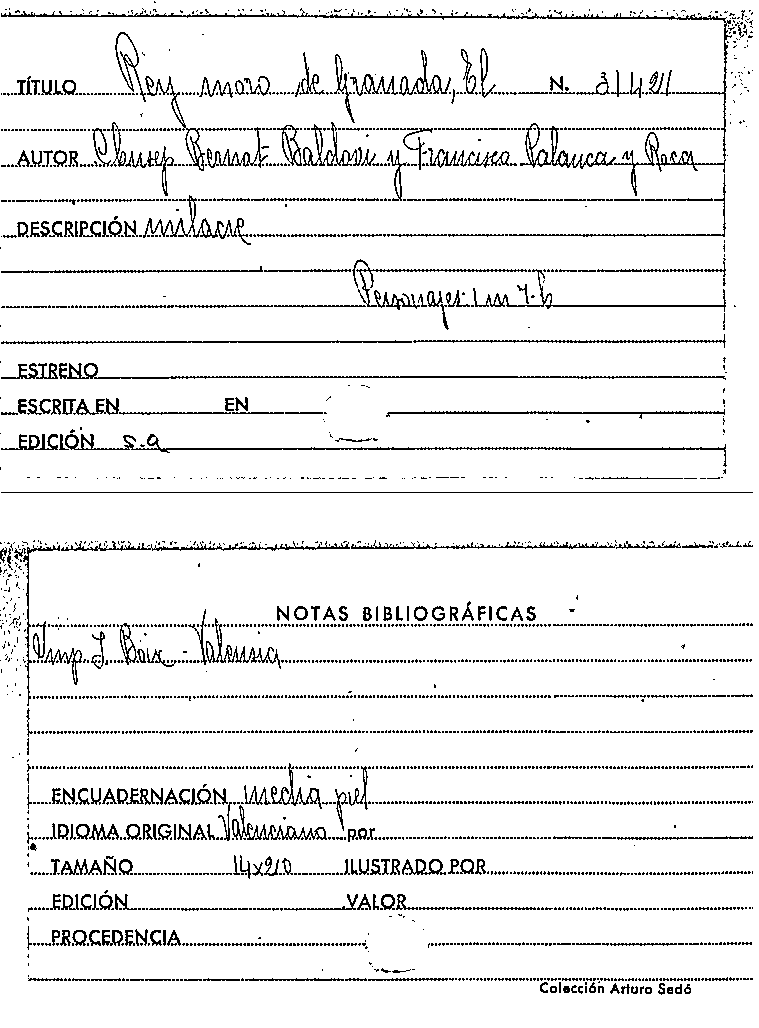 TÍTULO Rey moro de Granada, El N. 31421
AUTOR Chusep Bernat Baldovi y Francisco Palanca y Roca
DESCRIPCIÓN milacre
Personajes 1 m 7 h
ESTRENO
ESCRITA EN EN
EDICIÓN s.a
NOTAS BIBLIOGRÁFICAS
Imp. J. Boix - Valensia
ENCUADERNACIÓN media piel
IDIOMA ORIGINAL Valenciano por
TAMAÑO 14x210 ILUSTRADO POR
EDICIÓN VALOR
PROCEDENCIA
Colección Arturo Sedó